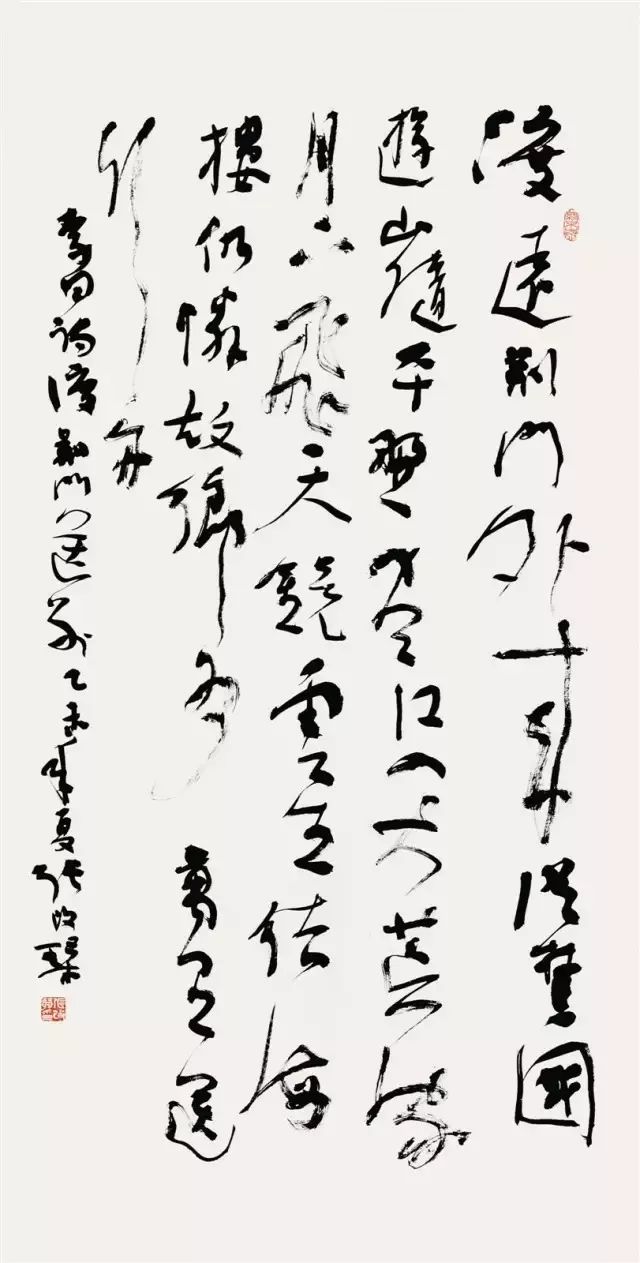 渡遠荊門外來從楚國
遊山隨平野盡江入大荒流
月下飛天鏡雲生結海
樓仍憐故鄉水萬里送
行舟
李白詩渡荊門送別乙未年夏張改琴